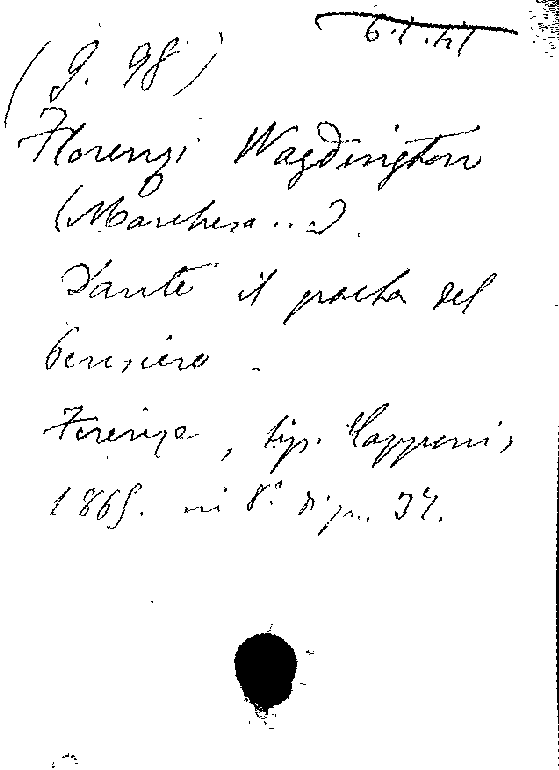 6.1.41
(g. 98)
Florenzi Wagdington
(Marchesa ..).
Dante il poeta del
Pensiero -
Firenze, tip. Capponi,
1865. in 8° di p. 34.